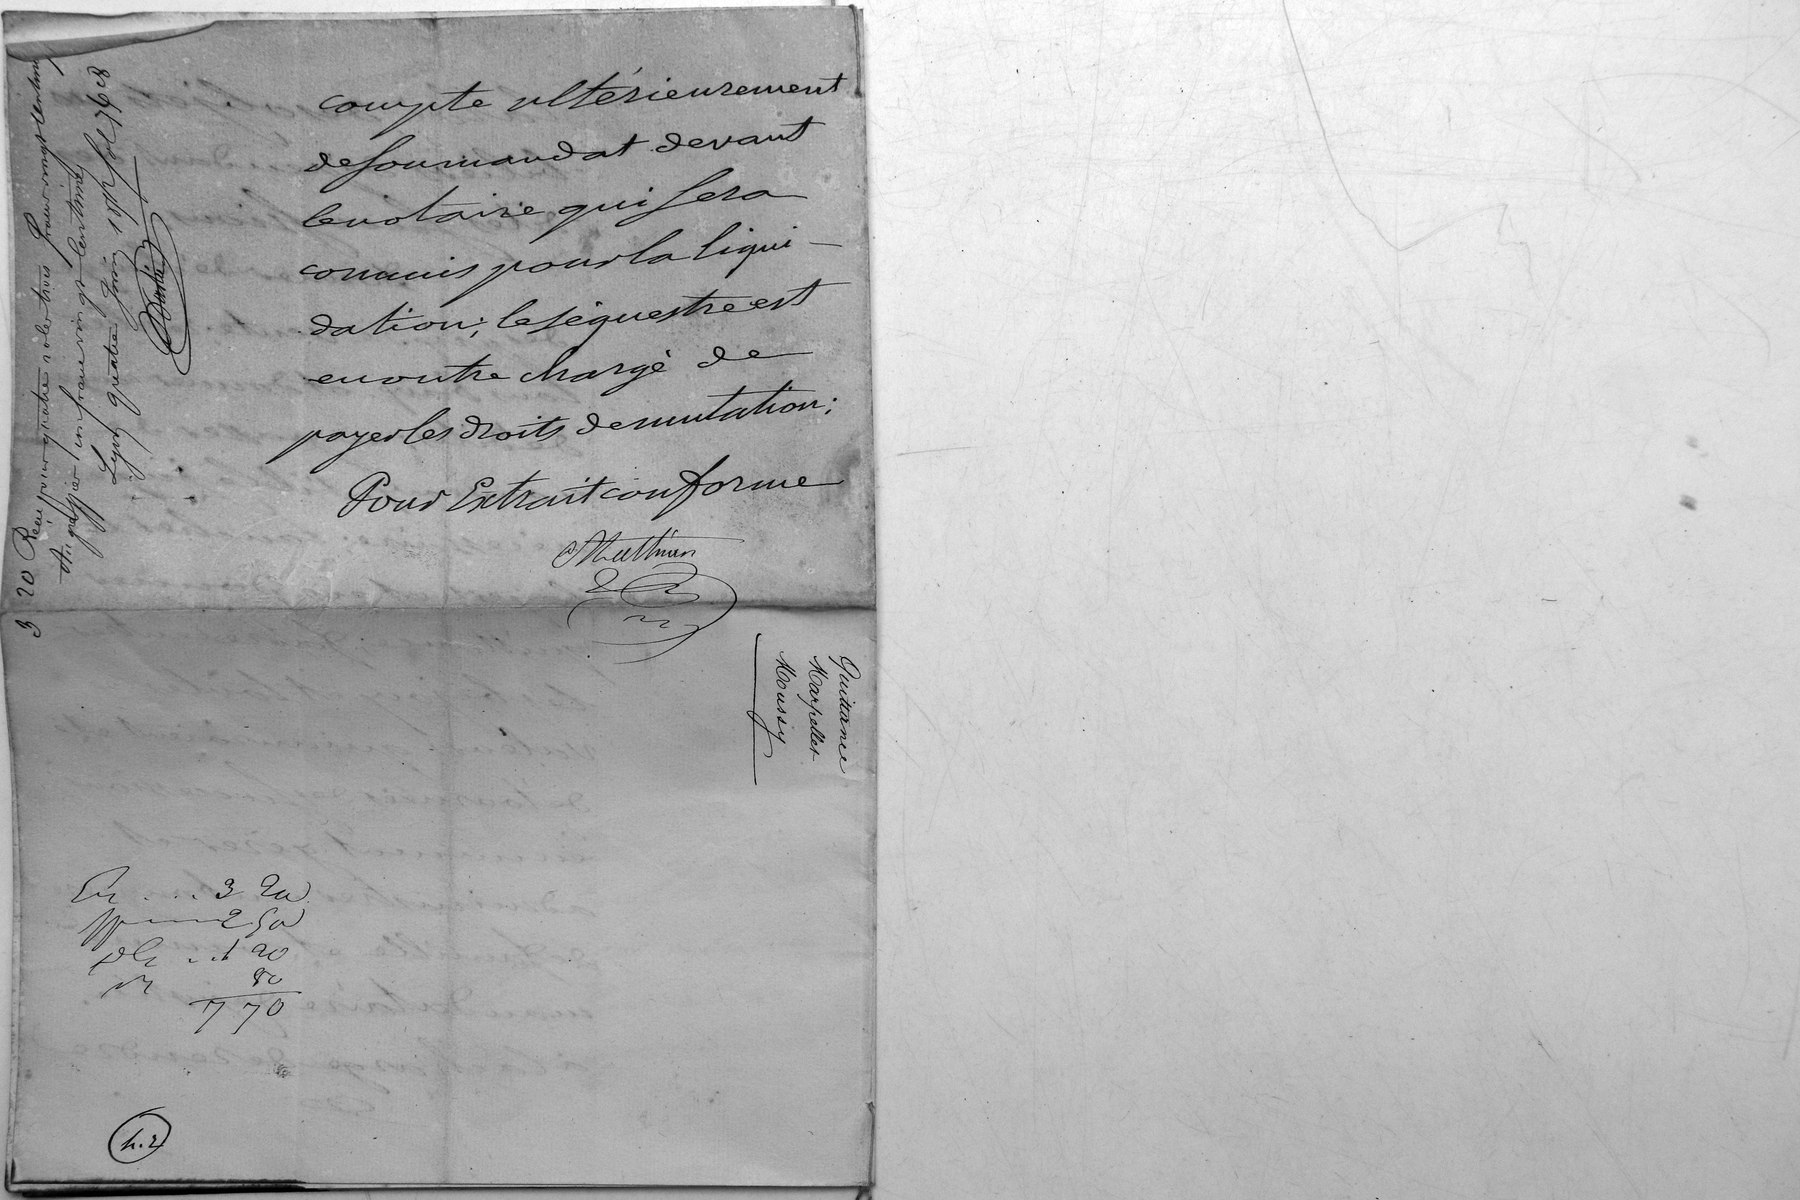 compte ultérieurement
de son mandat devant
le notaire qui sera
commis pour la liqui-
dation; le séquestre est
en outre chargé de
payer les droits de mutation;
Pour Extrait conforme
Mathieu
3 20 Reçu pour quatre roles trois francs vingt centimes
Au greffier un franc vingt centimes
Lyon quatre Juin 18
Quittance
Marpellet
Moussy
En ... 3 20
2 50
.. 1 20
80
7 70
h.2